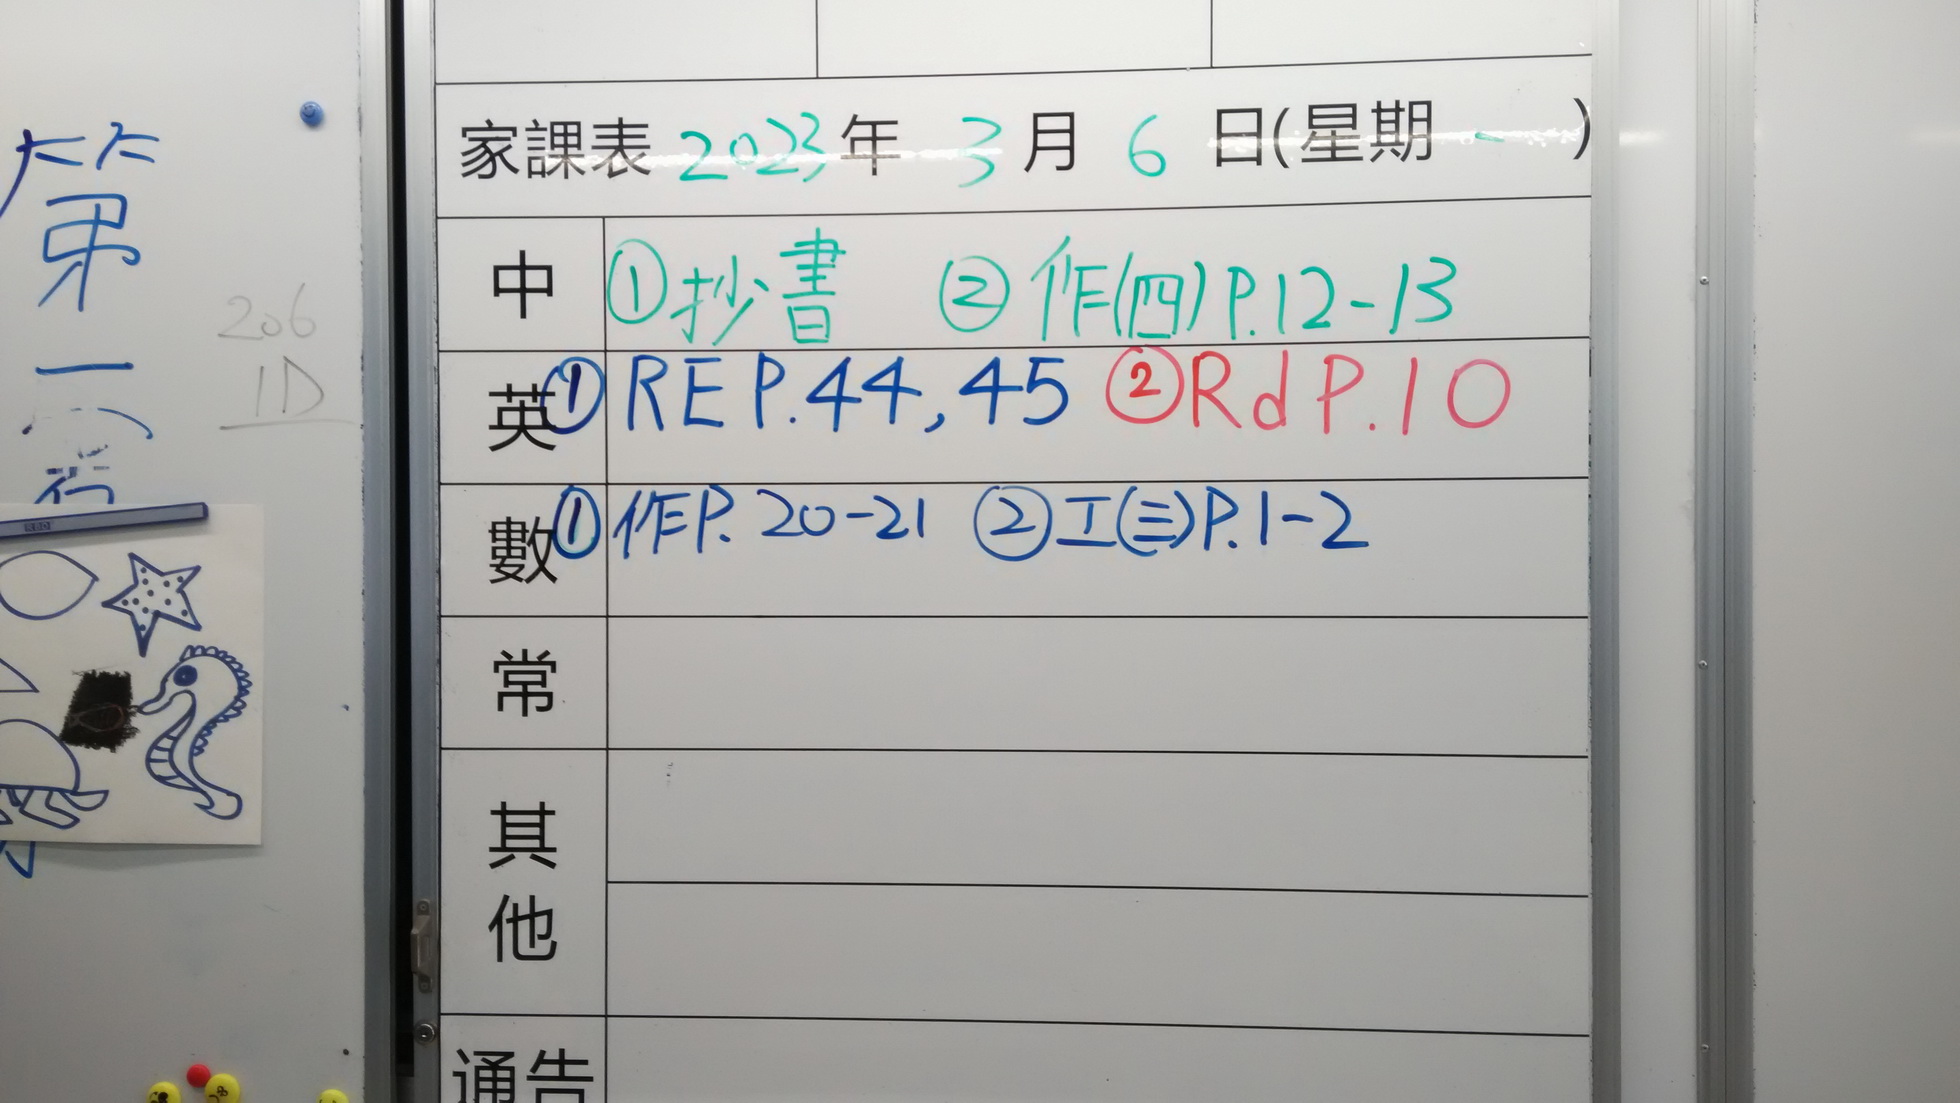 第
一
206
1D
家課表 2023 年 3 月 6 日(星期 一 )
中 ①抄書 ②作(四)P.12-13
英 ① RE P.44,45 ②Rd P.10
數 ①作P.20-21 ②工(三)P.1-2
常
其他
通告